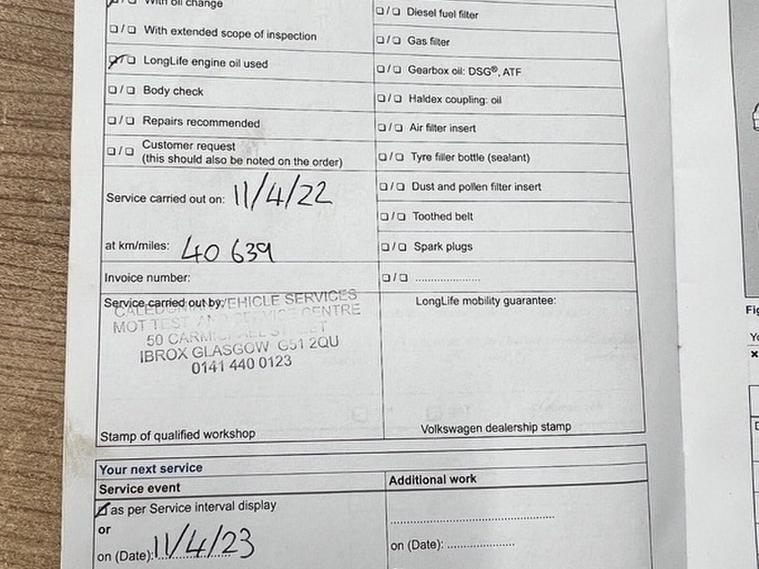 With oil change
/ With extended scope of inspection
/ LongLife engine oil used
/ Body check
/ Repairs recommended
/ Customer request
(this should also be noted on the order)
Service carried out on: 11/4/22
at km/miles: 40 639
Invoice number:
Service carried out by:
VEHICLE SERVICES
MOT TEST CENTRE
50
IBROX GLASGOW G51 2QU
0141 440 0123
Stamp of qualified workshop
/ Diesel fuel filter
/ Gas filter
/ Gearbox oil: DSG®, ATF
/ Haldex coupling: oil
/ Air filter insert
/ Tyre filler bottle (sealant)
/ Dust and pollen filter insert
/ Toothed belt
/ Spark plugs
/ ......................
LongLife mobility guarantee:
Volkswagen dealership stamp
Your next service
Service event
as per Service interval display
or
on (Date): 11/4/23
Additional work
on (Date): ..................